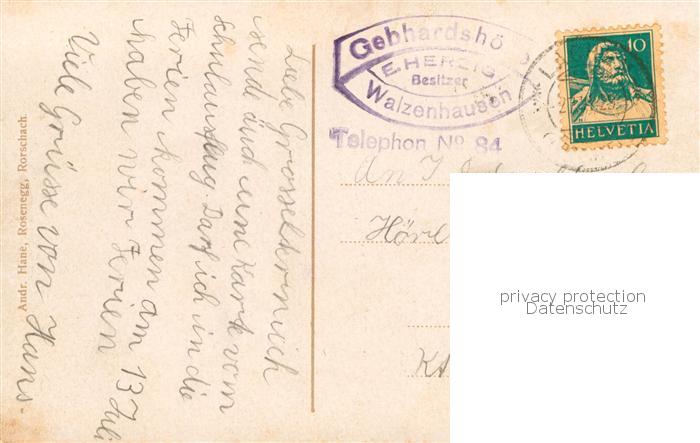 Liebe Grosseltern ich
sende euch eine Karte vom
Schulausflug. Darf ich in die
Ferien kommen am
haben wir Ferien 13 Juli
Viele Grüsse von Hans.
Andr. Hane, Rosenegg, Rorschach.
Gebhardshö
E. HERZIG
Besitzer
Walzenhausen
Telephon No 84
10
HELVETIA
An
Hörl
privacy protection
Datenschutz